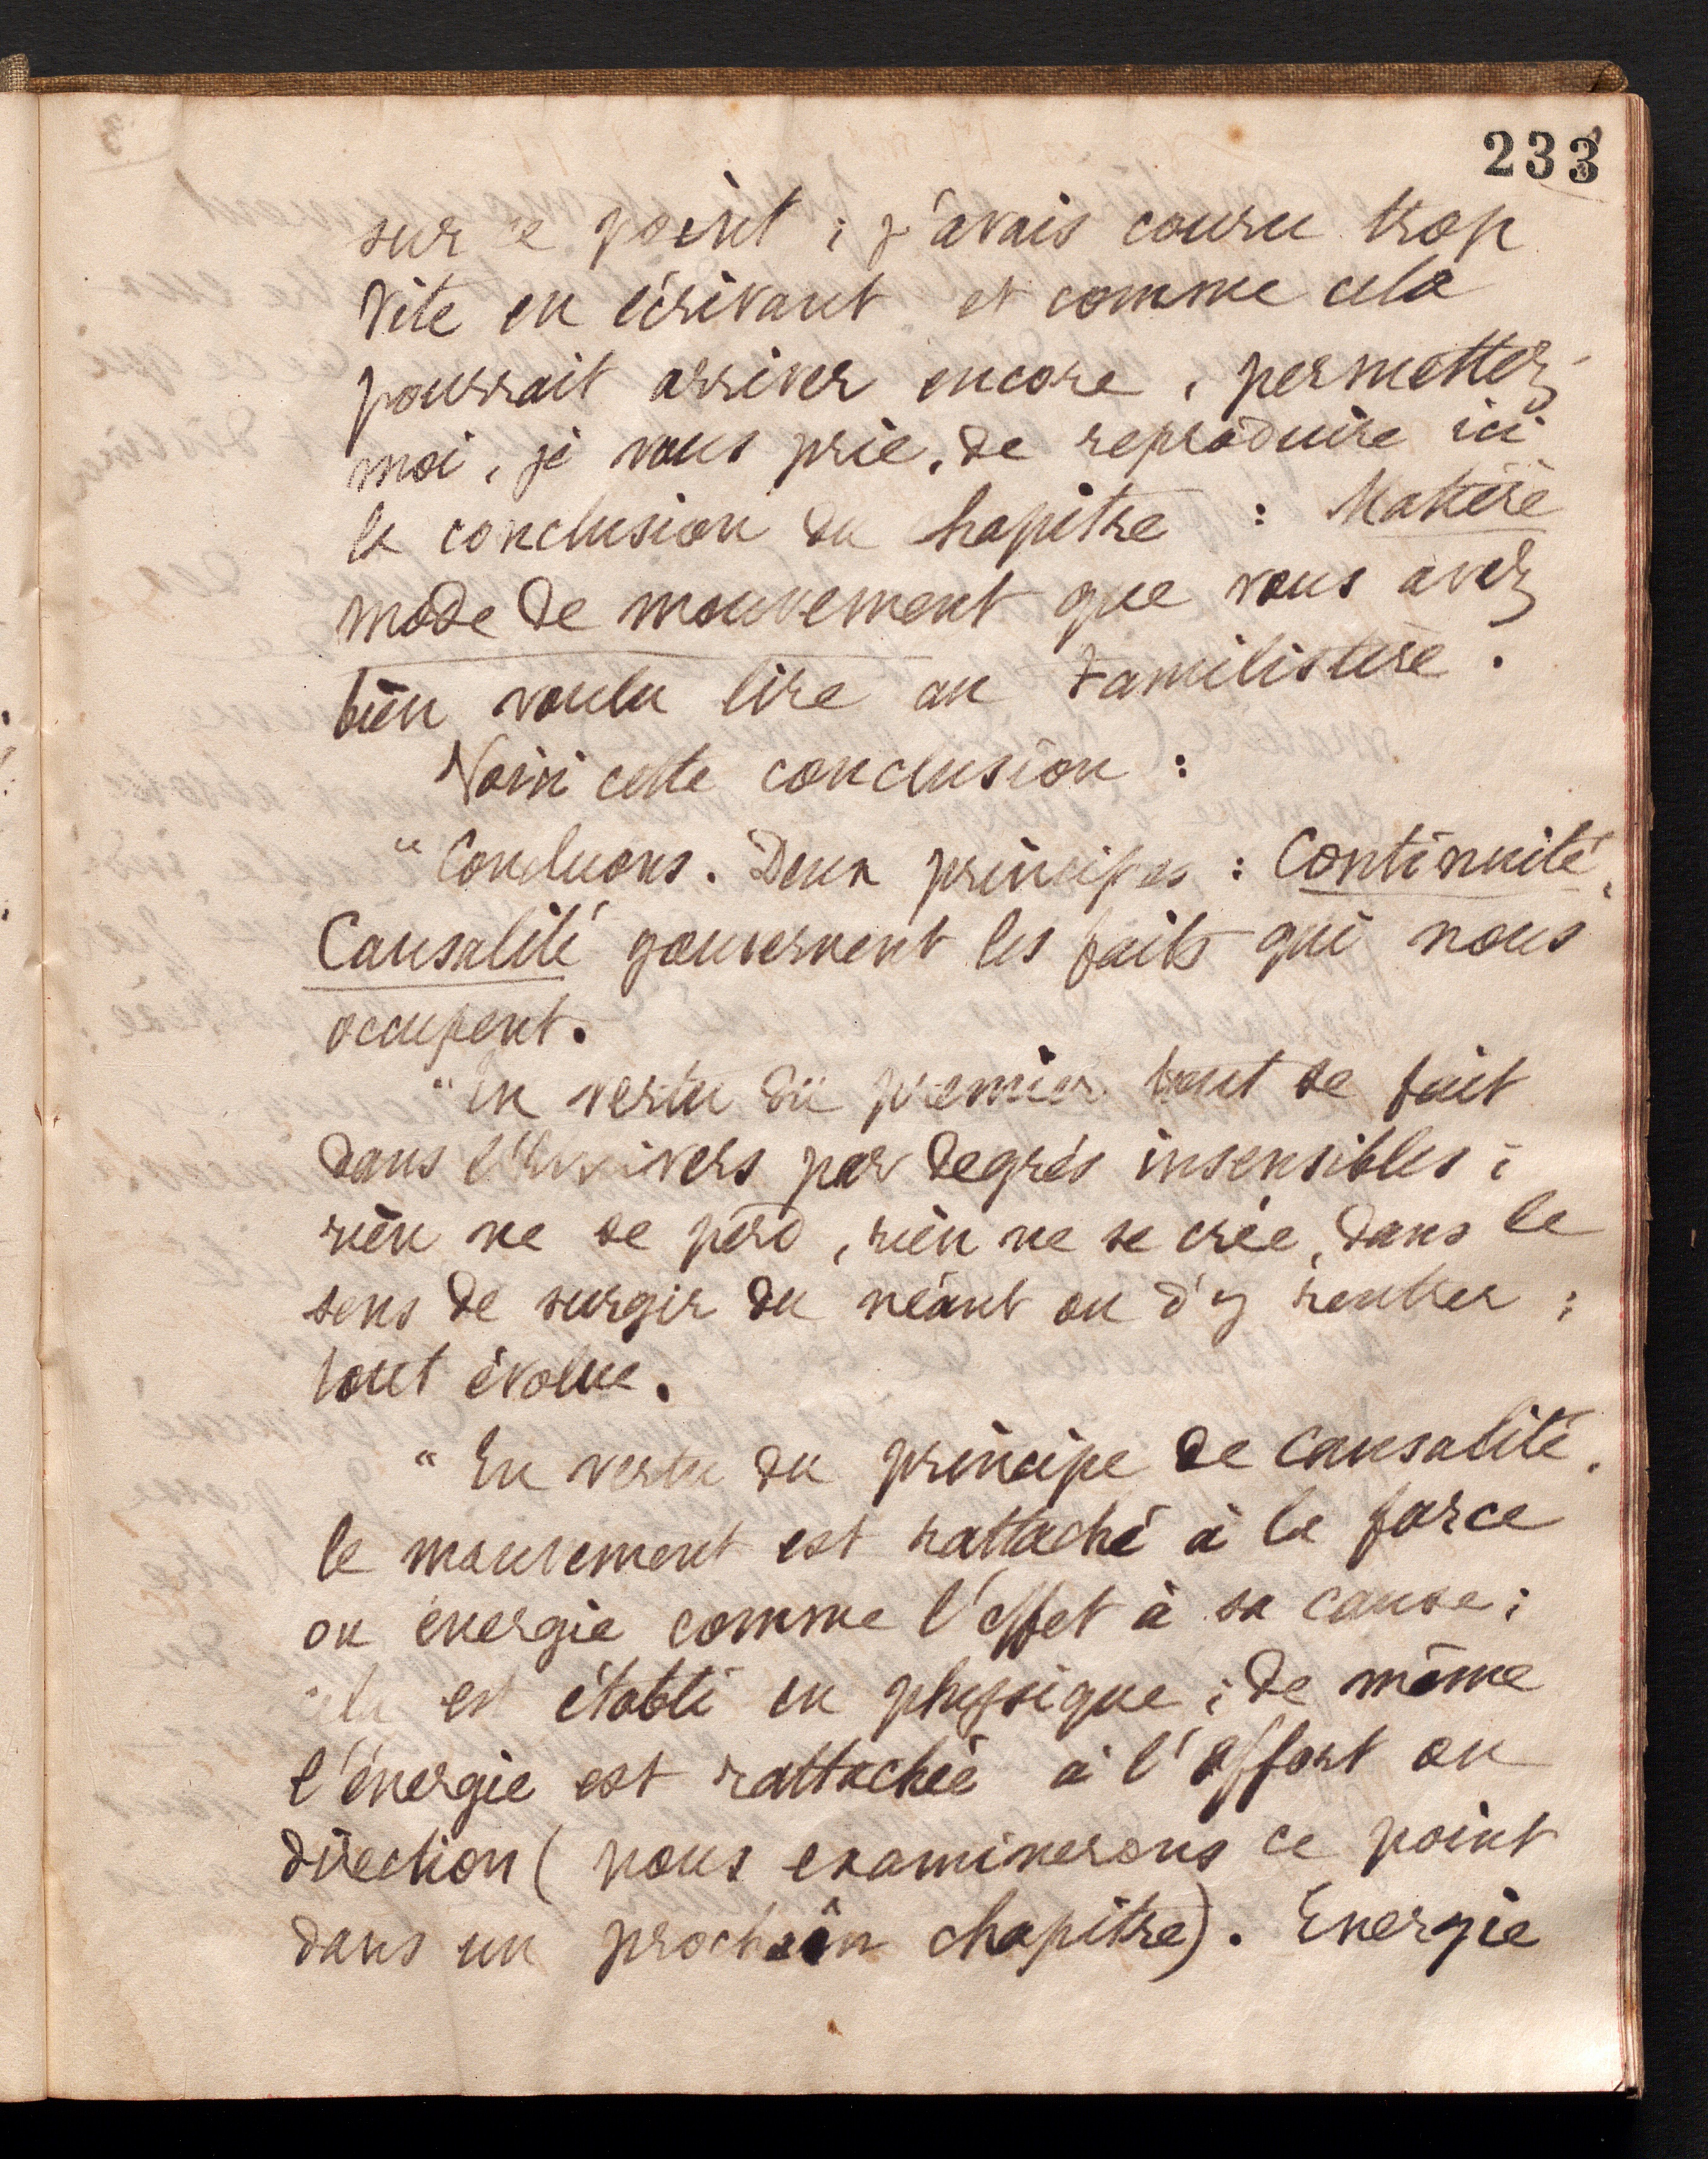 233
sur ce point ; j'avais couru trop
vite en écrivant et comme cela
pourrait arriver encore, permettez-
moi, je vous prie, de reproduire ici
la conclusion du chapitre : Matière
mode de mouvement que vous avez
bien voulu lire au Familistère.
Voici cette conclusion :
“Concluons. Deux principes : Continuité,
Causalité gouvernent les faits qui nous
occupent.
“En vertu du premier tout se fait
dans l'Univers par degrés insensibles ;
rien ne se perd, rien ne se crée, dans le
sens de surgir du néant ou d'y rentrer ;
tout évolue.
“En vertu du principe de causalité,
le mouvement est rattaché à la force
ou énergie comme l'effet à sa cause ;
cela est établi en physique ; de même
l'énergie est rattachée à l'effort ou
direction (nous examinerons ce point
dans un prochain chapitre). Energie